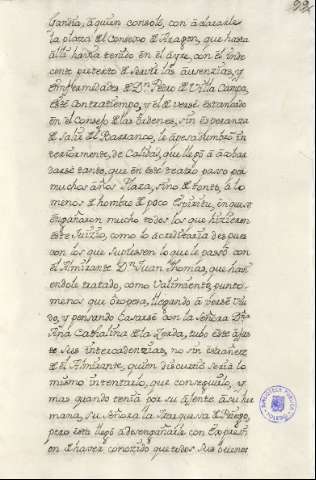 92
Gandia, à quien consolo, con adelarle
la plaza de el Consexo de Aragon, que hasta
allà havia tenido en el ayre, con el inde
cente pretexto de servir las ausenzias, y
enfermedades de Dn. Pedro de Villa Campa,
este contratiempo, y el de verse estancado
en el Consejo de las Ordenes, sin esperanza
de salir de el Barranco, le apesadumbrò in
teriormente, de calidad, que llegò à acobar
darse tanto, que en este teatro passo por
muchos años Plaza, sino de tonto, à lo
menos de hombre de poco Espiritu, en que se
engañaron mucho todos los que hizieron
este Juizio, como lo acreditaria despues
con los que supiessen lo que le passò con
el Almirante Dn. Juan Thomas, que havi
endole tratado, como Valimiento, punto
menos que de opera, llegando à verse viu
do, y pensando casarse con la señora Da.
Ana Cathalina de la Zerda, tubo este ajus
te sus intercadenzias, no sin estrañeza
de el Almirante, quien discurriò seria lo
mismo intentarlo, que conseguirlo, y
mas quando tenia por su Ajente à su her
mana, su señora la Marquesa de Priego,
pero esta llegò à desengañarle con Expression
de haver conozido que todos sus buenos